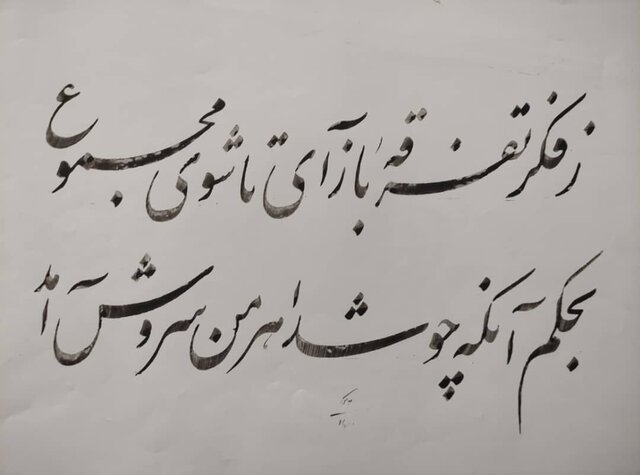 ز فکر تفرقه باز آی تا شوی مجموع
بحکم آنکه چو شد اهرمن سروش آمد